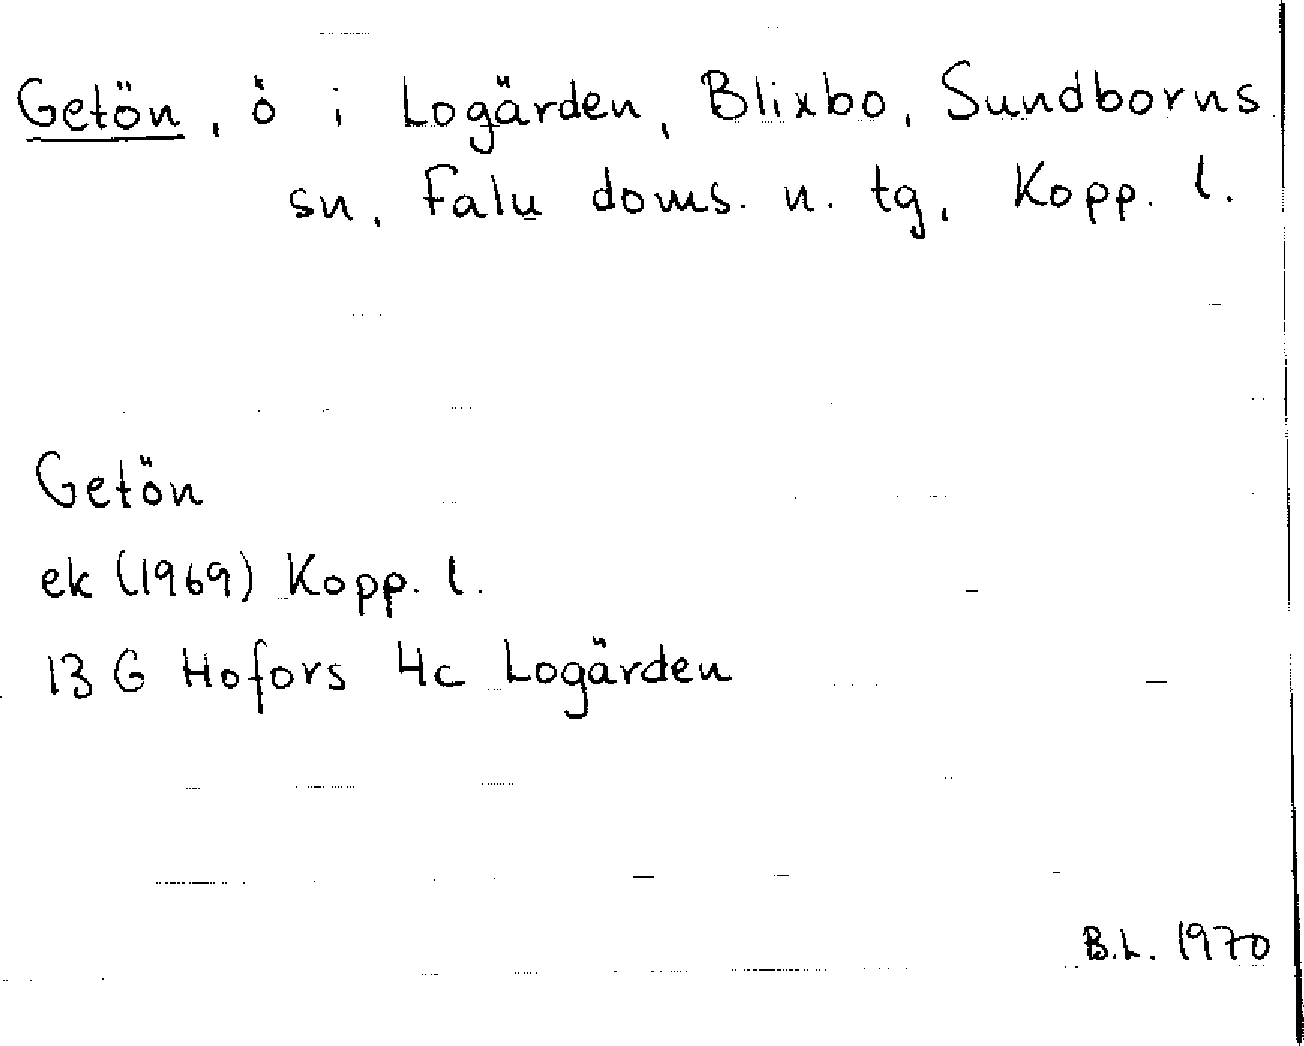 Getön, ö i Logärden, Blixbo, Sundborns
sn, Falu doms. n. tg, Kopp. l.
Getön
ek (1969) Kopp. l.
13 G Hofors 4c Logärden
B.L. 1970